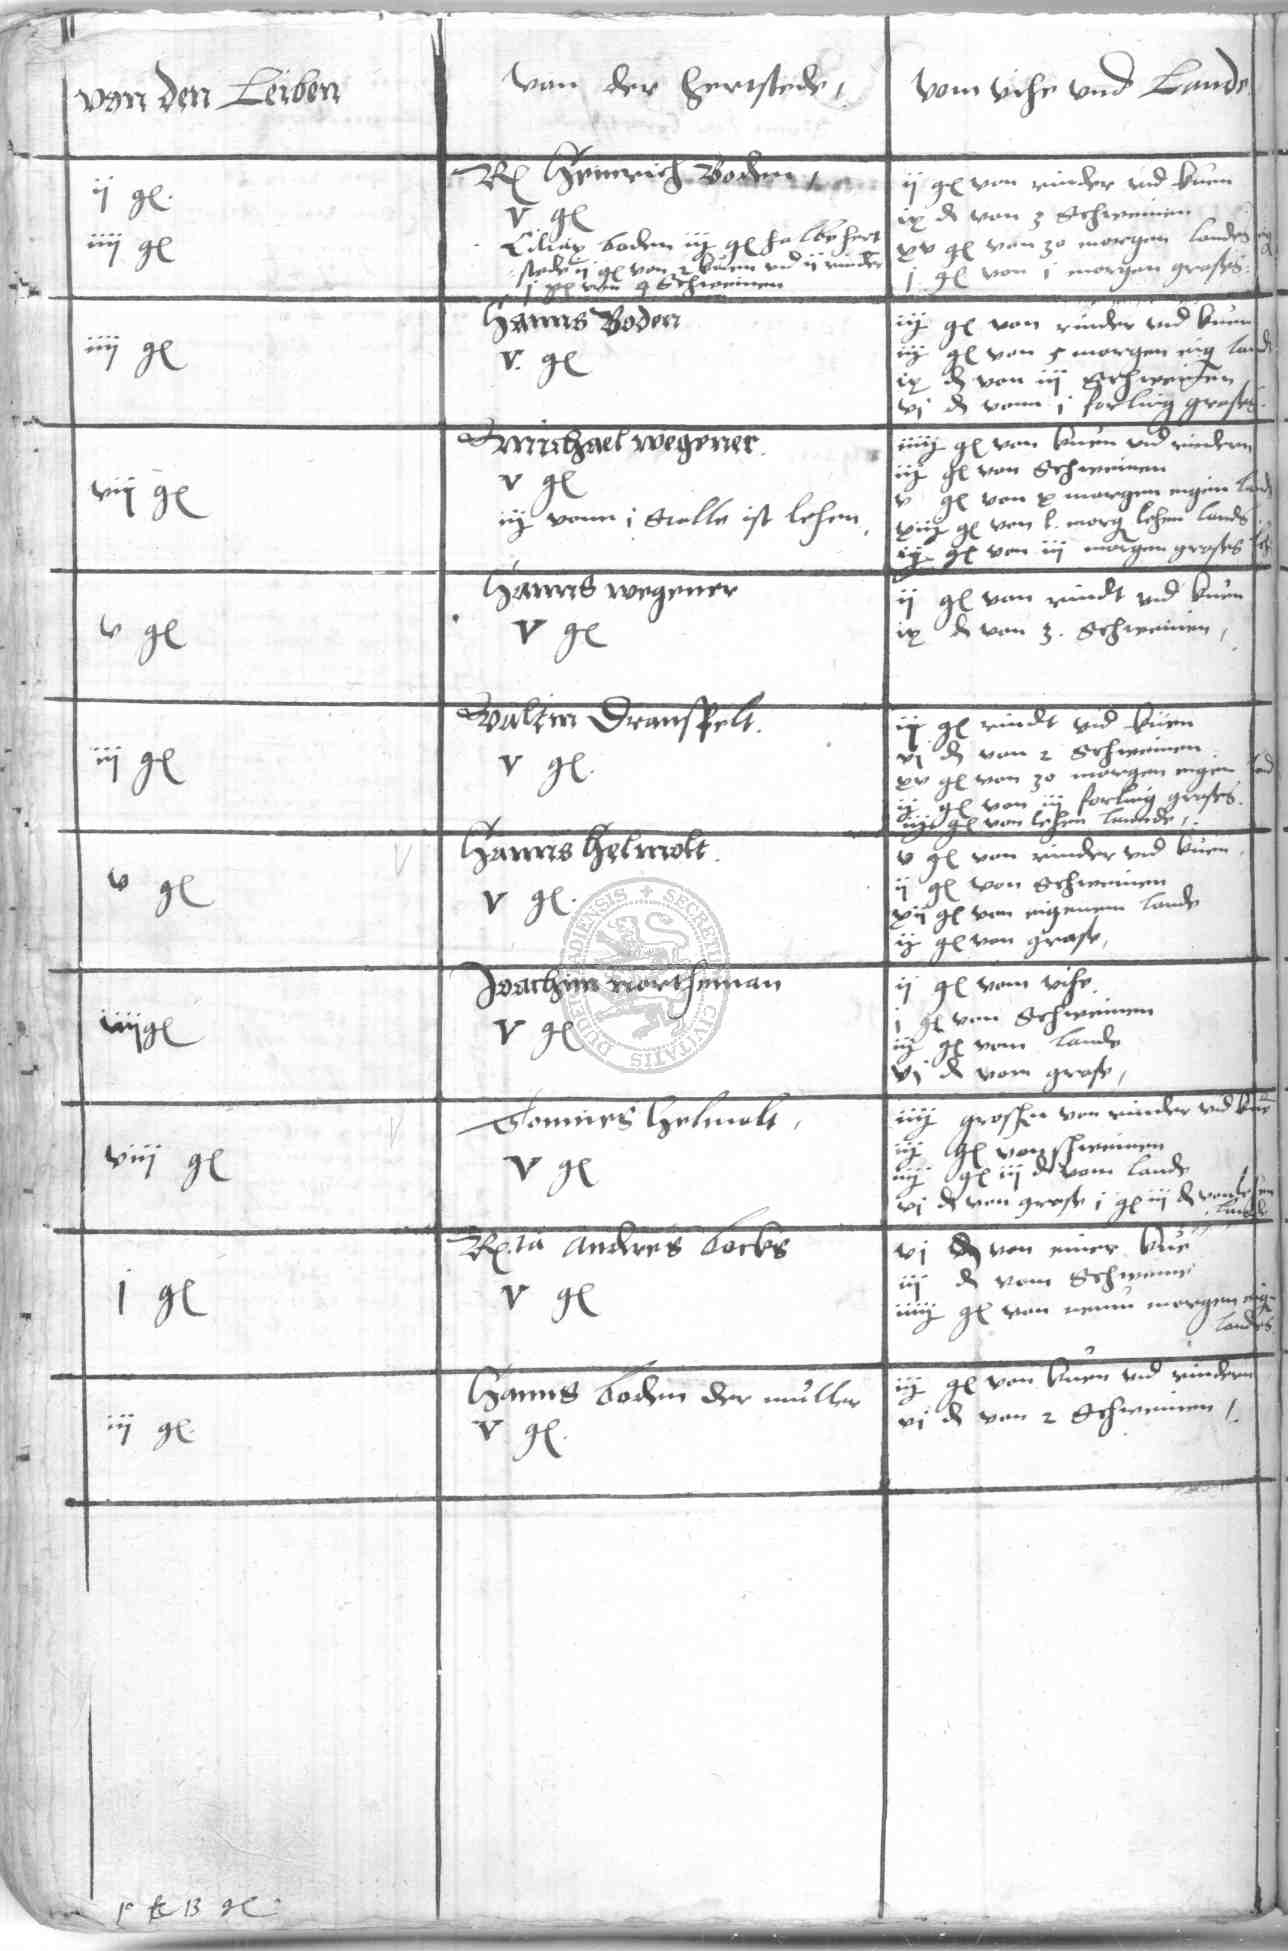 von den Leiben
van der hertstede,
vom vihe und Lande
ij gl.
iiij gl
Heinrich Boden,
v gl
Ciliax boden iij gl halbe hert
stede ij gl von 2 kuen und ij rinder
von 4 Schweinen
ij gl von rinder und kuen
ix d von 3 Schweinen
xv gl von 30 morgen landes
j gl von i morgen grases
iiij gl
Hanns Boden
v. gl
iij gl von rinder und kuen
iij gl von 5 morgen eig land
ix d von iij Schweinen
vi d vonn i forling grases
vij gl
Michael wegener.
v gl
iij vonn i Stelle ist lehen,
iiij gl von kuen und rindern
iij gl von Schweinen
v gl von x morgen eigen land
xiij gl von l. morg lehen lands
gl von iij morgen grases
v gl
Hanns wegener
v gl
ij gl von rindt und kuen
ix d von 3. Schweinen,
iij gl
Valtin Dransfelt.
v gl.
iij gl rindt und kuen
vj d von 2 Schweinen
xv gl von 30 morgen eigen land
ij gl von iij forling grases.
iiij gl von lehen lannde,
v gl
Hanns helmolt.
v gl.
v gl von rinder und kuen,
ij gl von Schweinen
xij gl von eigenem lande
ij gl von grase,
DUDERSTADIENSIS + SECRETUM CIVITATIS
gl
Joachim northeman
v gl
ij gl vom vihe.
j gl von Schweinen
iij gl vom lande
vj d vom grase,
viij gl
Tonnies helmolt,
v gl
iiij groschn von rinder und kue
iij gl von schweinen
iiij gl iij d vom lande
vj d von grase i gl iij d von lehen
lande
j gl
Andres bocks
v gl
vj d von einer kue
iij d vom Schweine
iiij gl von neunn morgen eig
landes
iij gl.
Hanns boden der muller
v gl.
iij gl von kuen und rindern
vj d von 2 Schweinen,
13 gl